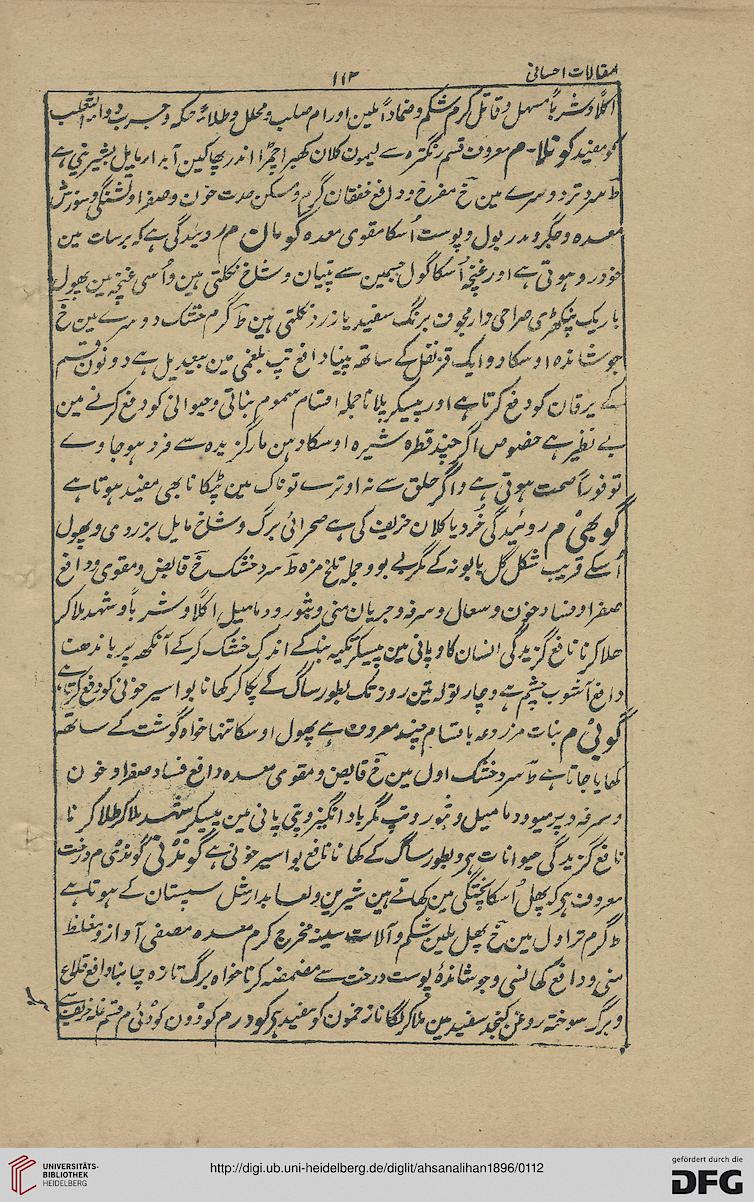 مقالات احسانی
۱۱۲
اکلاً و شرباً مسہل و قاتل کرم شکم و ضماداً ملین اورام صلب و محلل و طلائہ حکہ و جرب و داءالثعلب
کو مفید کونلا - م معروف قسم رنگترہ سے لیمون کلان کھیرا چمڑا اندر پھانکین آبدار مایل بشیرینی ہے
ط سرد تر دوسرے مین خ مفرح و دافع خفقان گرم و مسکن حدت خون و صفرا و تشنگی و سوزش
معدہ و جگر و مدر بول و پوست اُسکا مقوی معدہ گومان م روئیدگی ہے کہ برسات مین
خودرو ہوتی ہے اور غنچہ اُسکا گول جسمین سے پتیان و شاخ نکلتی ہین و اُسی غنچہ مین پھول
باریک پنکھڑی صراحی دار مجوف برنگ سفید یا زرد نکلتی ہین ط گرم خشک دوسرے مین خ
جوشاندہ اوسکا دو ایک قرنفل کے ساتھ پینا دافع تپ بلغمی مین بیعدیل ہے دونون قسم
کے یرقان کو دفع کرتا ہے اور پیسکر پلانا جملہ اقسام سموم نباتی و حیوانی کو دفع کرنے مین
بے نظیر ہے خصوص اگر چند قطرہ شیرہ اوسکا دہن مارگزیدہ سے فرو ہو جاوے
تو فوراً صحت ہوتی ہے و اگر حلق سے نہ اوترے تو ناک مین ٹپکانا بھی مفید ہوتا ہے
گوبھی م روئیدگی خُرد یا کلان خریف کی ہے صحرائی برگ و شاخ مایل بزردی و پھول
اُسکے قریب شکل گل بابونہ کے مگر بے بو و جملہ تلخ مزہ ط سرد خشک خ قابض و مقوی و دافع
صفرا و فساد خون و سعال و سرفہ و جریان منی و بثور و دمامیل اکلاً و شرباً و شہد ملا کر
طلا کرنا نافع گزیدگی انسان کا و پانی مین پیسکر ٹکیہ بنا کے اندک خشک کر کے آنکھ پر باندھنا
دافع آشوب چشم ہے و چار تولہ تین روز تک بطور ساگ کے پکا کر کھانا بواسیر خونی کو دفع کرتا ہے
گوبی م نبات مزروعہ باقسام چند معروف ہے پھول اوسکا تنہا خواہ گوشت کے ساتھ
کھایا جاتا ہے ط سرد و خشک اول مین خ قابض و مقوی معدہ دافع فساد صفرا و خون
و سرفہ و پرمیو و دمامیل و بثور و تپ مگر باد انگیز و پتی پانی مین پیسکر شہد ملا کر طلا کرنا
نافع گزیدگی حیوانات ہے و بطور ساگ کے کھانا نافع بواسیر خونی ہے گوندنی گوندی م درخت
معروف ہے کہ پھل اُسکا پختگی مین کھاتے ہین شیرین و لعابدار مثل سپستان کے ہوتا ہے
ط گرم تر اول مین خ پھل ملین شکم و آلات سینہ مخرج کرم معدہ مصفی آواز و مغلظ
منی و دافع کھانسی و جوشاندہ پوست درخت سے مضمضہ کرنا خواہ برگ تازہ چابنا دافع قلاع
و برگ سوختہ روغن کنجد سفید مین ملا کر لگانا زخمون کو مفید ہے کودرم کودون کودئی م قسم غلہ خریف سے
UNIVERSITÄTS-
BIBLIOTHEK
HEIDELBERG
http://digi.ub.uni-heidelberg.de/diglit/ahsanalihan1896/0112
gefördert durch die
DFG